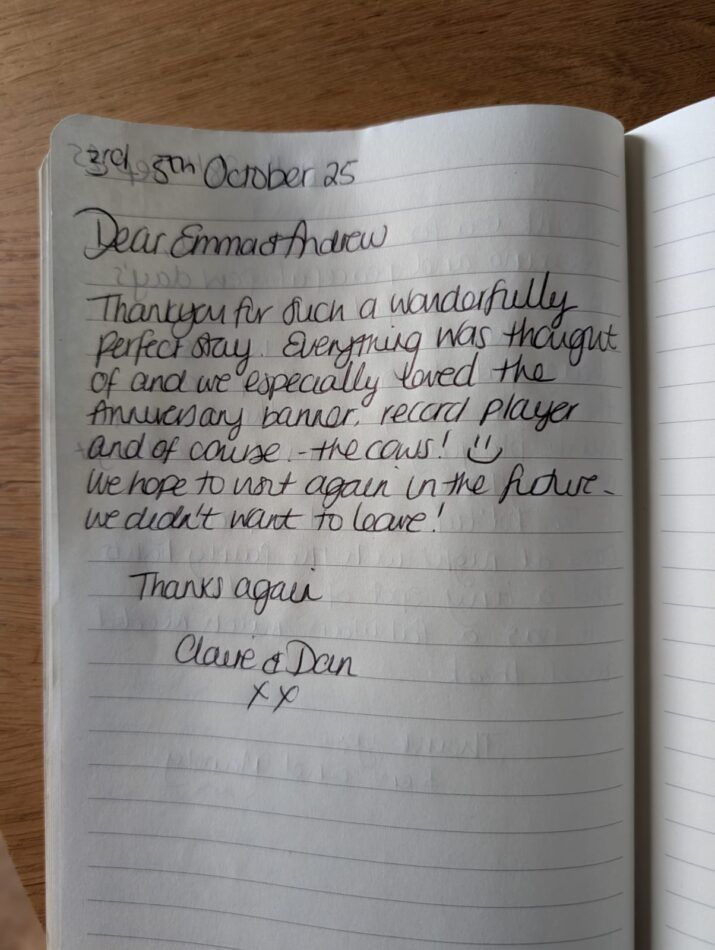 3rd 5th October 25
Dear Emma & Andrew
Thankyou for such a wonderfully
perfect stay. Everything was thought
of and we especially loved the
Anniversary banner, record player
and of course - the cows! :)
We hope to visit again in the future -
we didn't want to leave!
Thanks again
Claire & Dan
xx